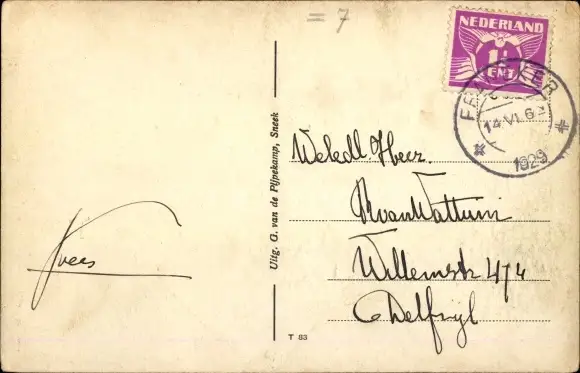 = 7
NEDERLAND
1½
CENT
FRANEKER
14.VI.6
1929
Uitg. G. van de Pijpekamp, Sneek
Weledl. Heer.
R van Wattum
Willemstr 474
Delfzijl
T 83